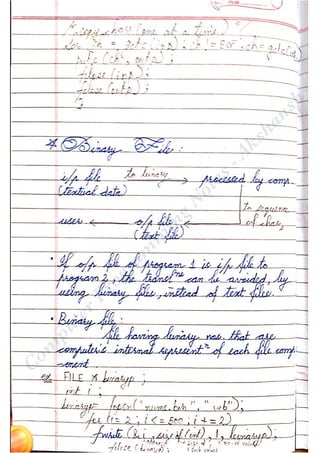 /* copy char (one at a time) */
for (ch = getc(inp); ch != EOF; ch = getc(inp))
putc (ch, outp);
fclose (inp);
fclose (outp);
}
* Binary File :
i/p file to binary processed by comp.
(textual data)
to sequence
user o/p file of char,
(text file)
• If o/p file of program 1 is i/p file to
program 2, the transl^ne can be avoided, by
using binary files, instead of text files.
• Binary file :
file having binary nos. that are
computer's internal represent^n of each file comp-
-onent.
ex FILE * binaryp ;
int i ;
binaryp = fopen("nums.bin", "wb");
for (i = 2 ; i <= 500 ; i += 2)
fwrite (&i, sizeof(int), 1, binaryp);
fclose (binaryp);
Computer Programming Notes - Akshansh